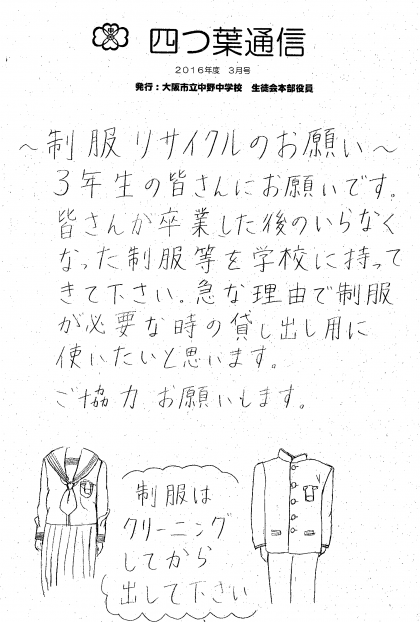 四つ葉通信
2016年度 3月号
発行：大阪市立中野中学校 生徒会本部役員
～制服リサイクルのお願い～
3年生の皆さんにお願いです。
皆さんが卒業した後のいらなく
なった制服等を学校に持って
きて下さい。急な理由で制服
が必要な時の貸し出し用に
使いたいと思います。
ご協力お願いします。
制服は
クリーニング
してから
出して下さい